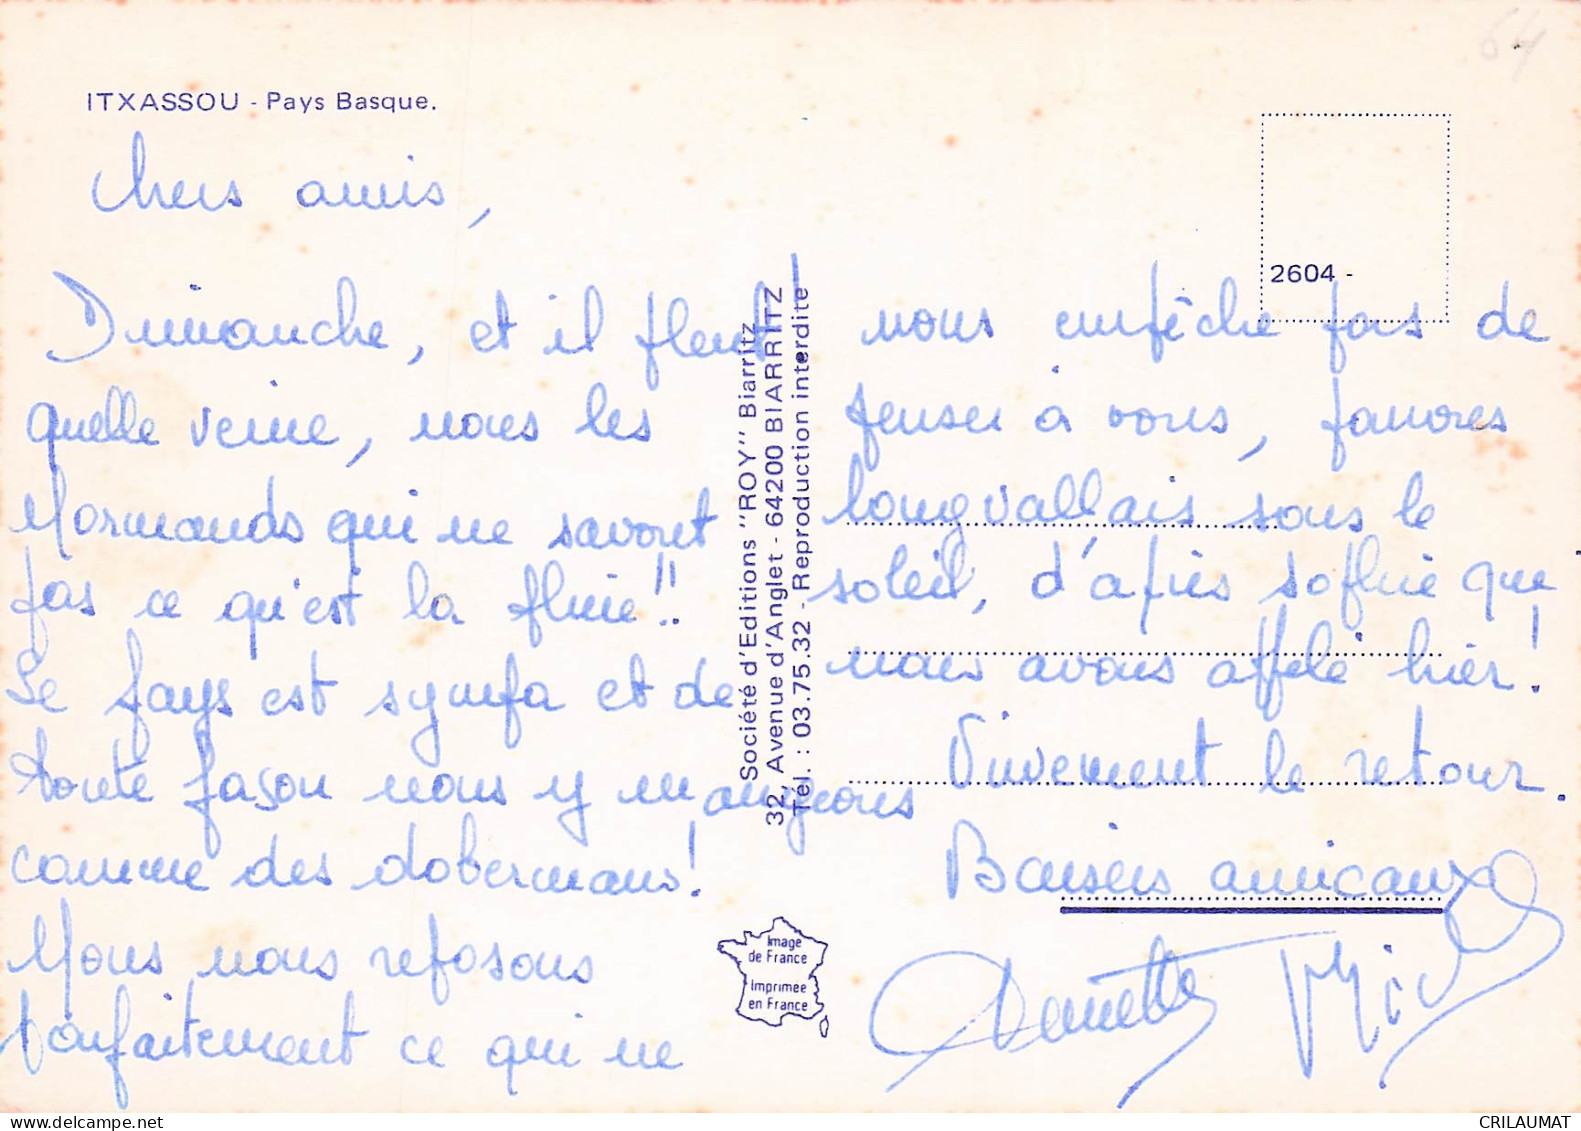 64
ITXASSOU - Pays Basque.
Chers amis,
Dimanche, et il pleut
quelle veine, nous les
Normands qui ne savont
pas ce qu'est la pluie!!
Le pays est sympa et de
toute façon nous y mangeons
comme des dobermans!
Nous nous reposons
parfaitement ce qui ne
Société d'Editions "ROY" Biarritz
32, Avenue d'Anglet - 64200 BIARRITZ
Tél. : 03.75.32 - Reproduction interdite
Image
de France
Imprimée
en France
2604 -
nous empêche pas de
penser à vous, pauvres
longvallais sous le
soleil, d'après Sophie que
nous avons appelé hier!
Vivement le retour.
Baisers amicaux
CRILAUMAT